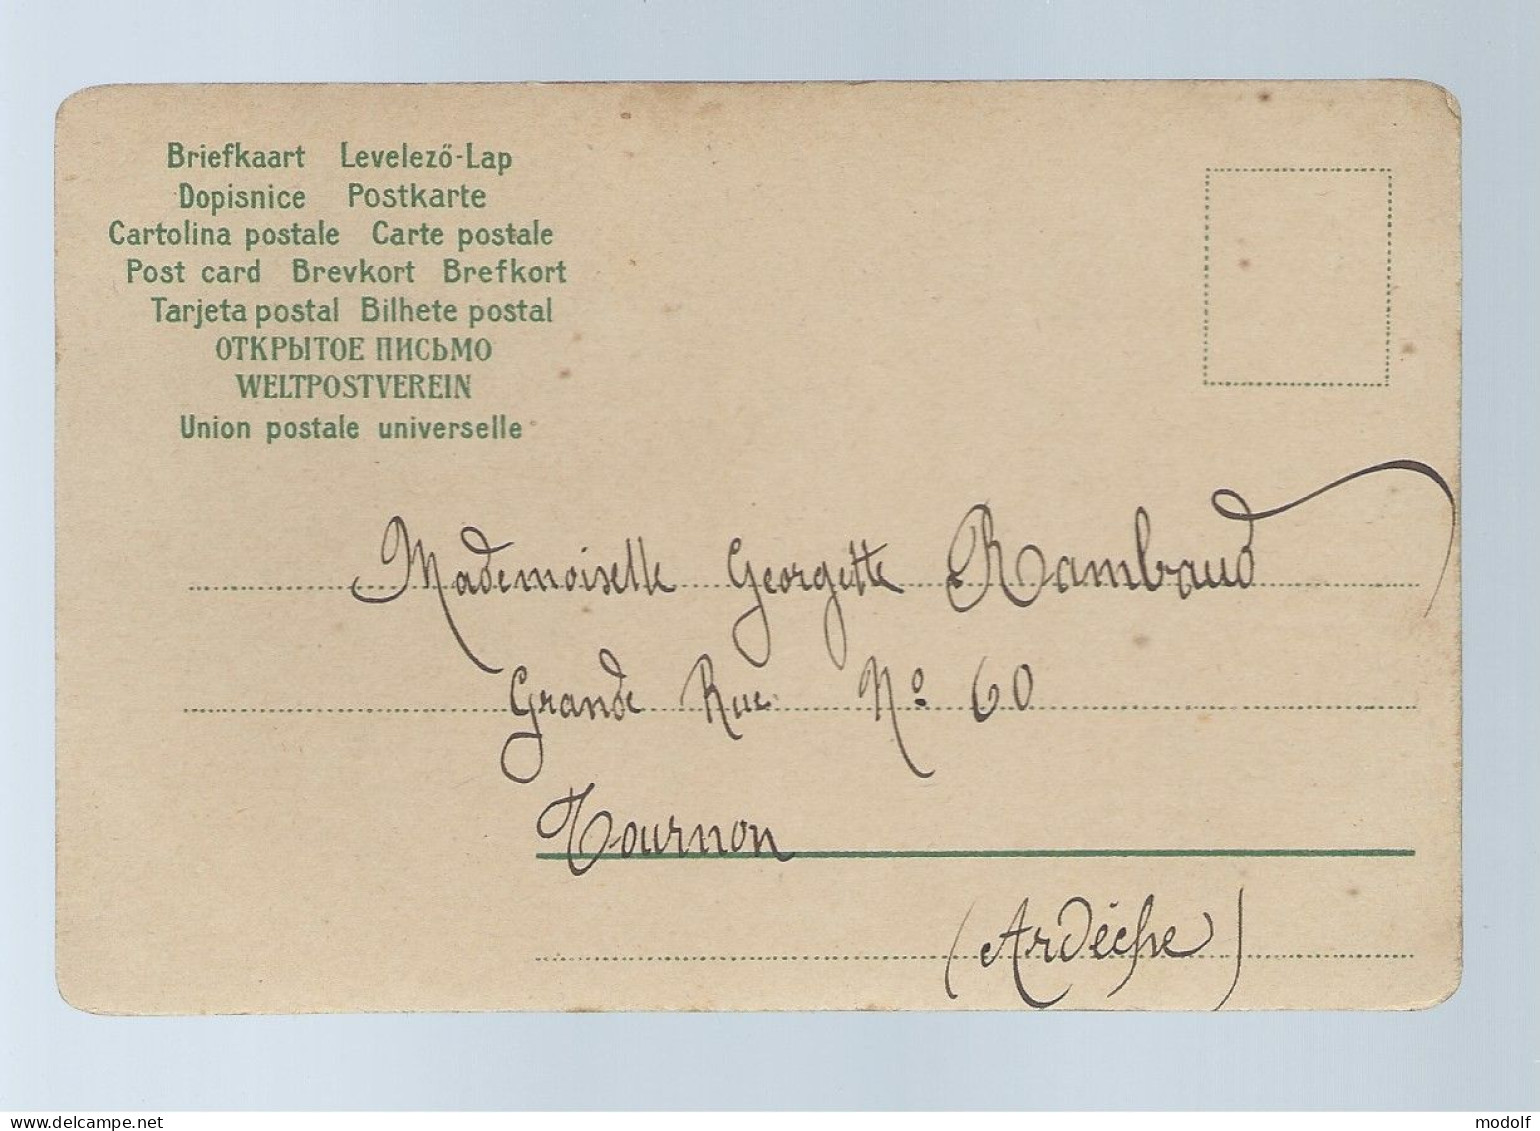 Briefkaart Levelező-Lap
Dopisnice Postkarte
Cartolina postale Carte postale
Post card Brevkort Brefkort
Tarjeta postal Bilhete postal
ОТКРЫТОЕ ПИСЬМО
WELTPOSTVEREIN
Union postale universelle
Mademoiselle Georgette Rambaud
Grande Rue Nº 60
Tournon
(Ardèche)
delcampe.net
modolf